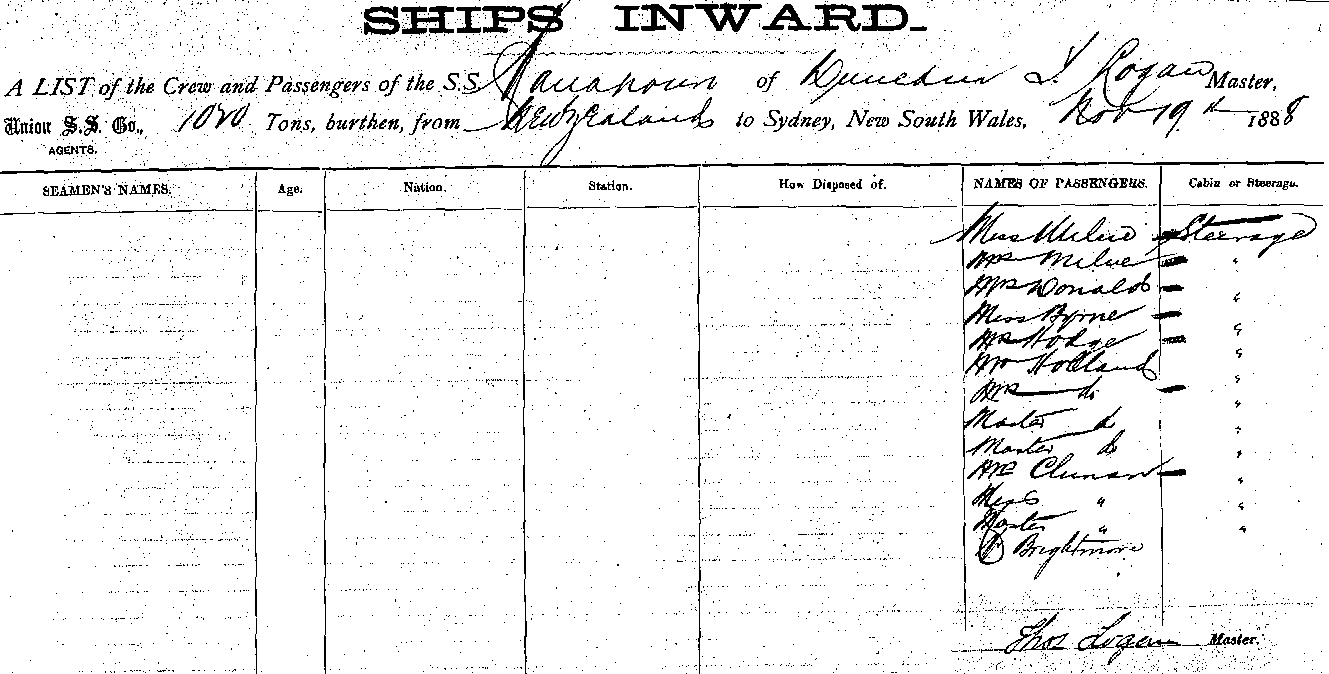 SHIPS INWARD.
A LIST of the Crew and Passengers of the S.S. Manapouri of Dunedin T. Logan Master,
Union S.S. Co., 1020 Tons, burthen, from New Zealand to Sydney, New South Wales, Nov 19th 1888
AGENTS.
SEAMEN'S NAMES. Age. Nation. Station. How Disposed of. NAMES OF PASSENGERS. Cabin or Steerage.
Miss Milne Steerage
Mrs Milne "
Mrs Donald "
Miss Byrne "
Mrs Hodge "
Mr Holland "
Mrs do "
Master do "
Master do "
Mrs "
Miss " "
Master " "
Brightmore
Thos Logan Master.